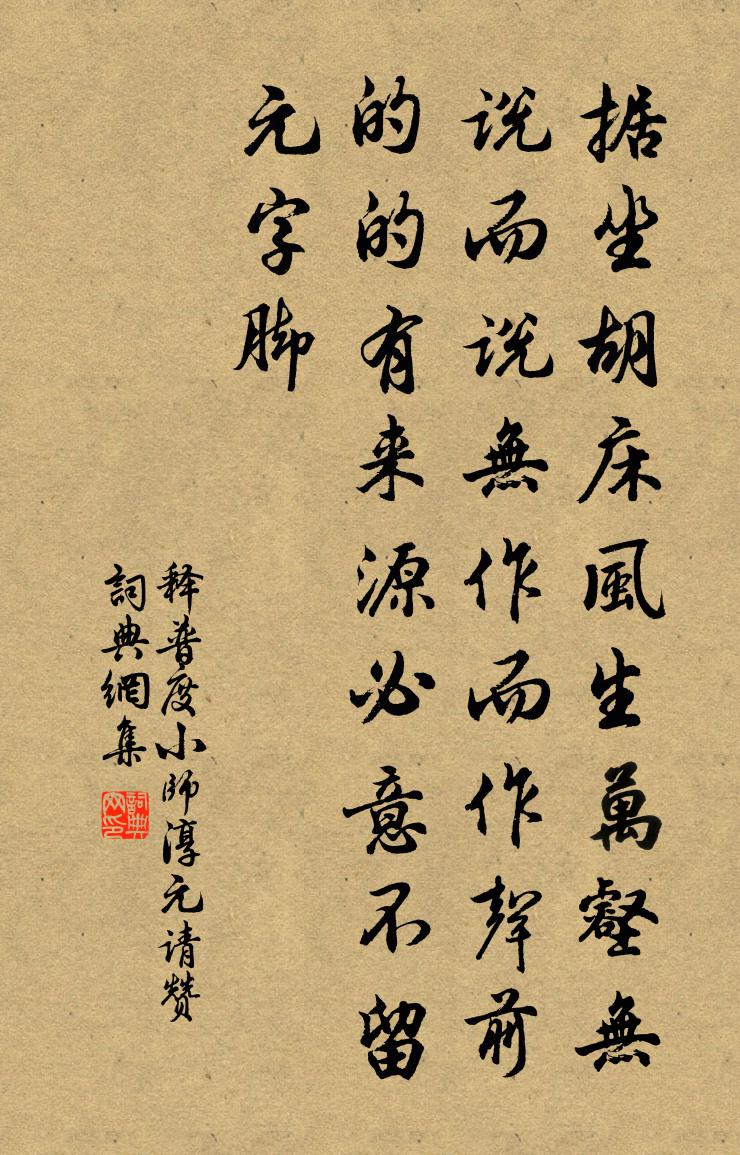 据坐胡床風生萬壑無
说而说無作而作聲前
的的有来源必意不留
元字脚
释普度小师淳元请赞
詞典網集
詞典网印